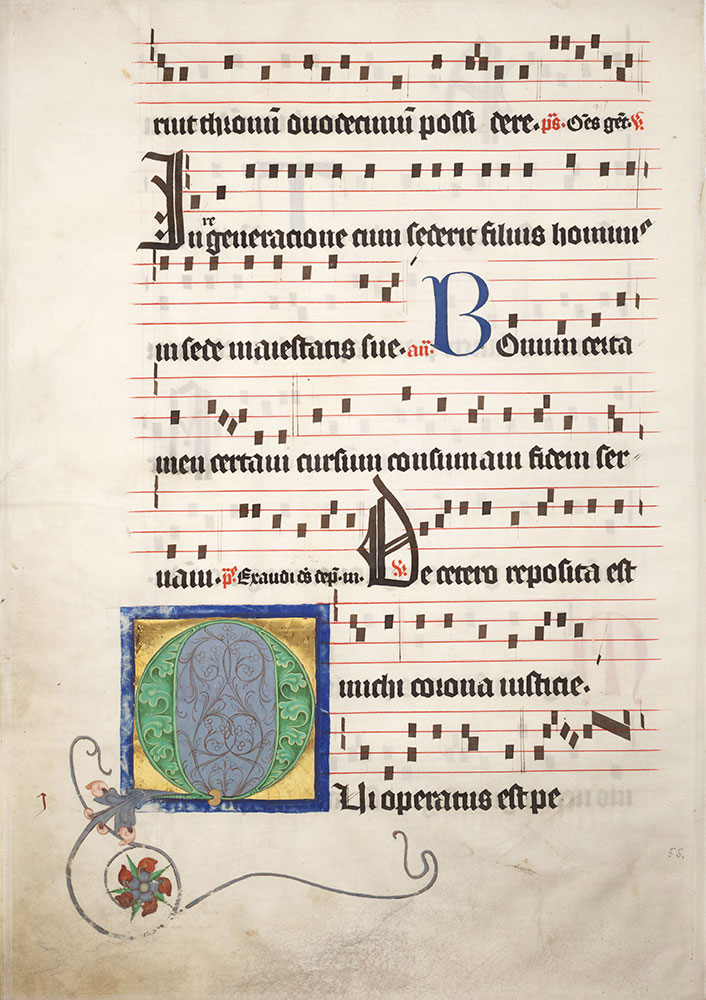 rint thronū duodecimū possi dere. ps. Oēs gēt. V.
In re generacione cum sederit filius hominis
in sede maiestatis sue. an. Bonum certa
men certavi cursum consumavi fidem ser
vavi. ps. Exaudi V. De cetero reposita est
michi corona iusticie.
Qui operatus est pe
55.